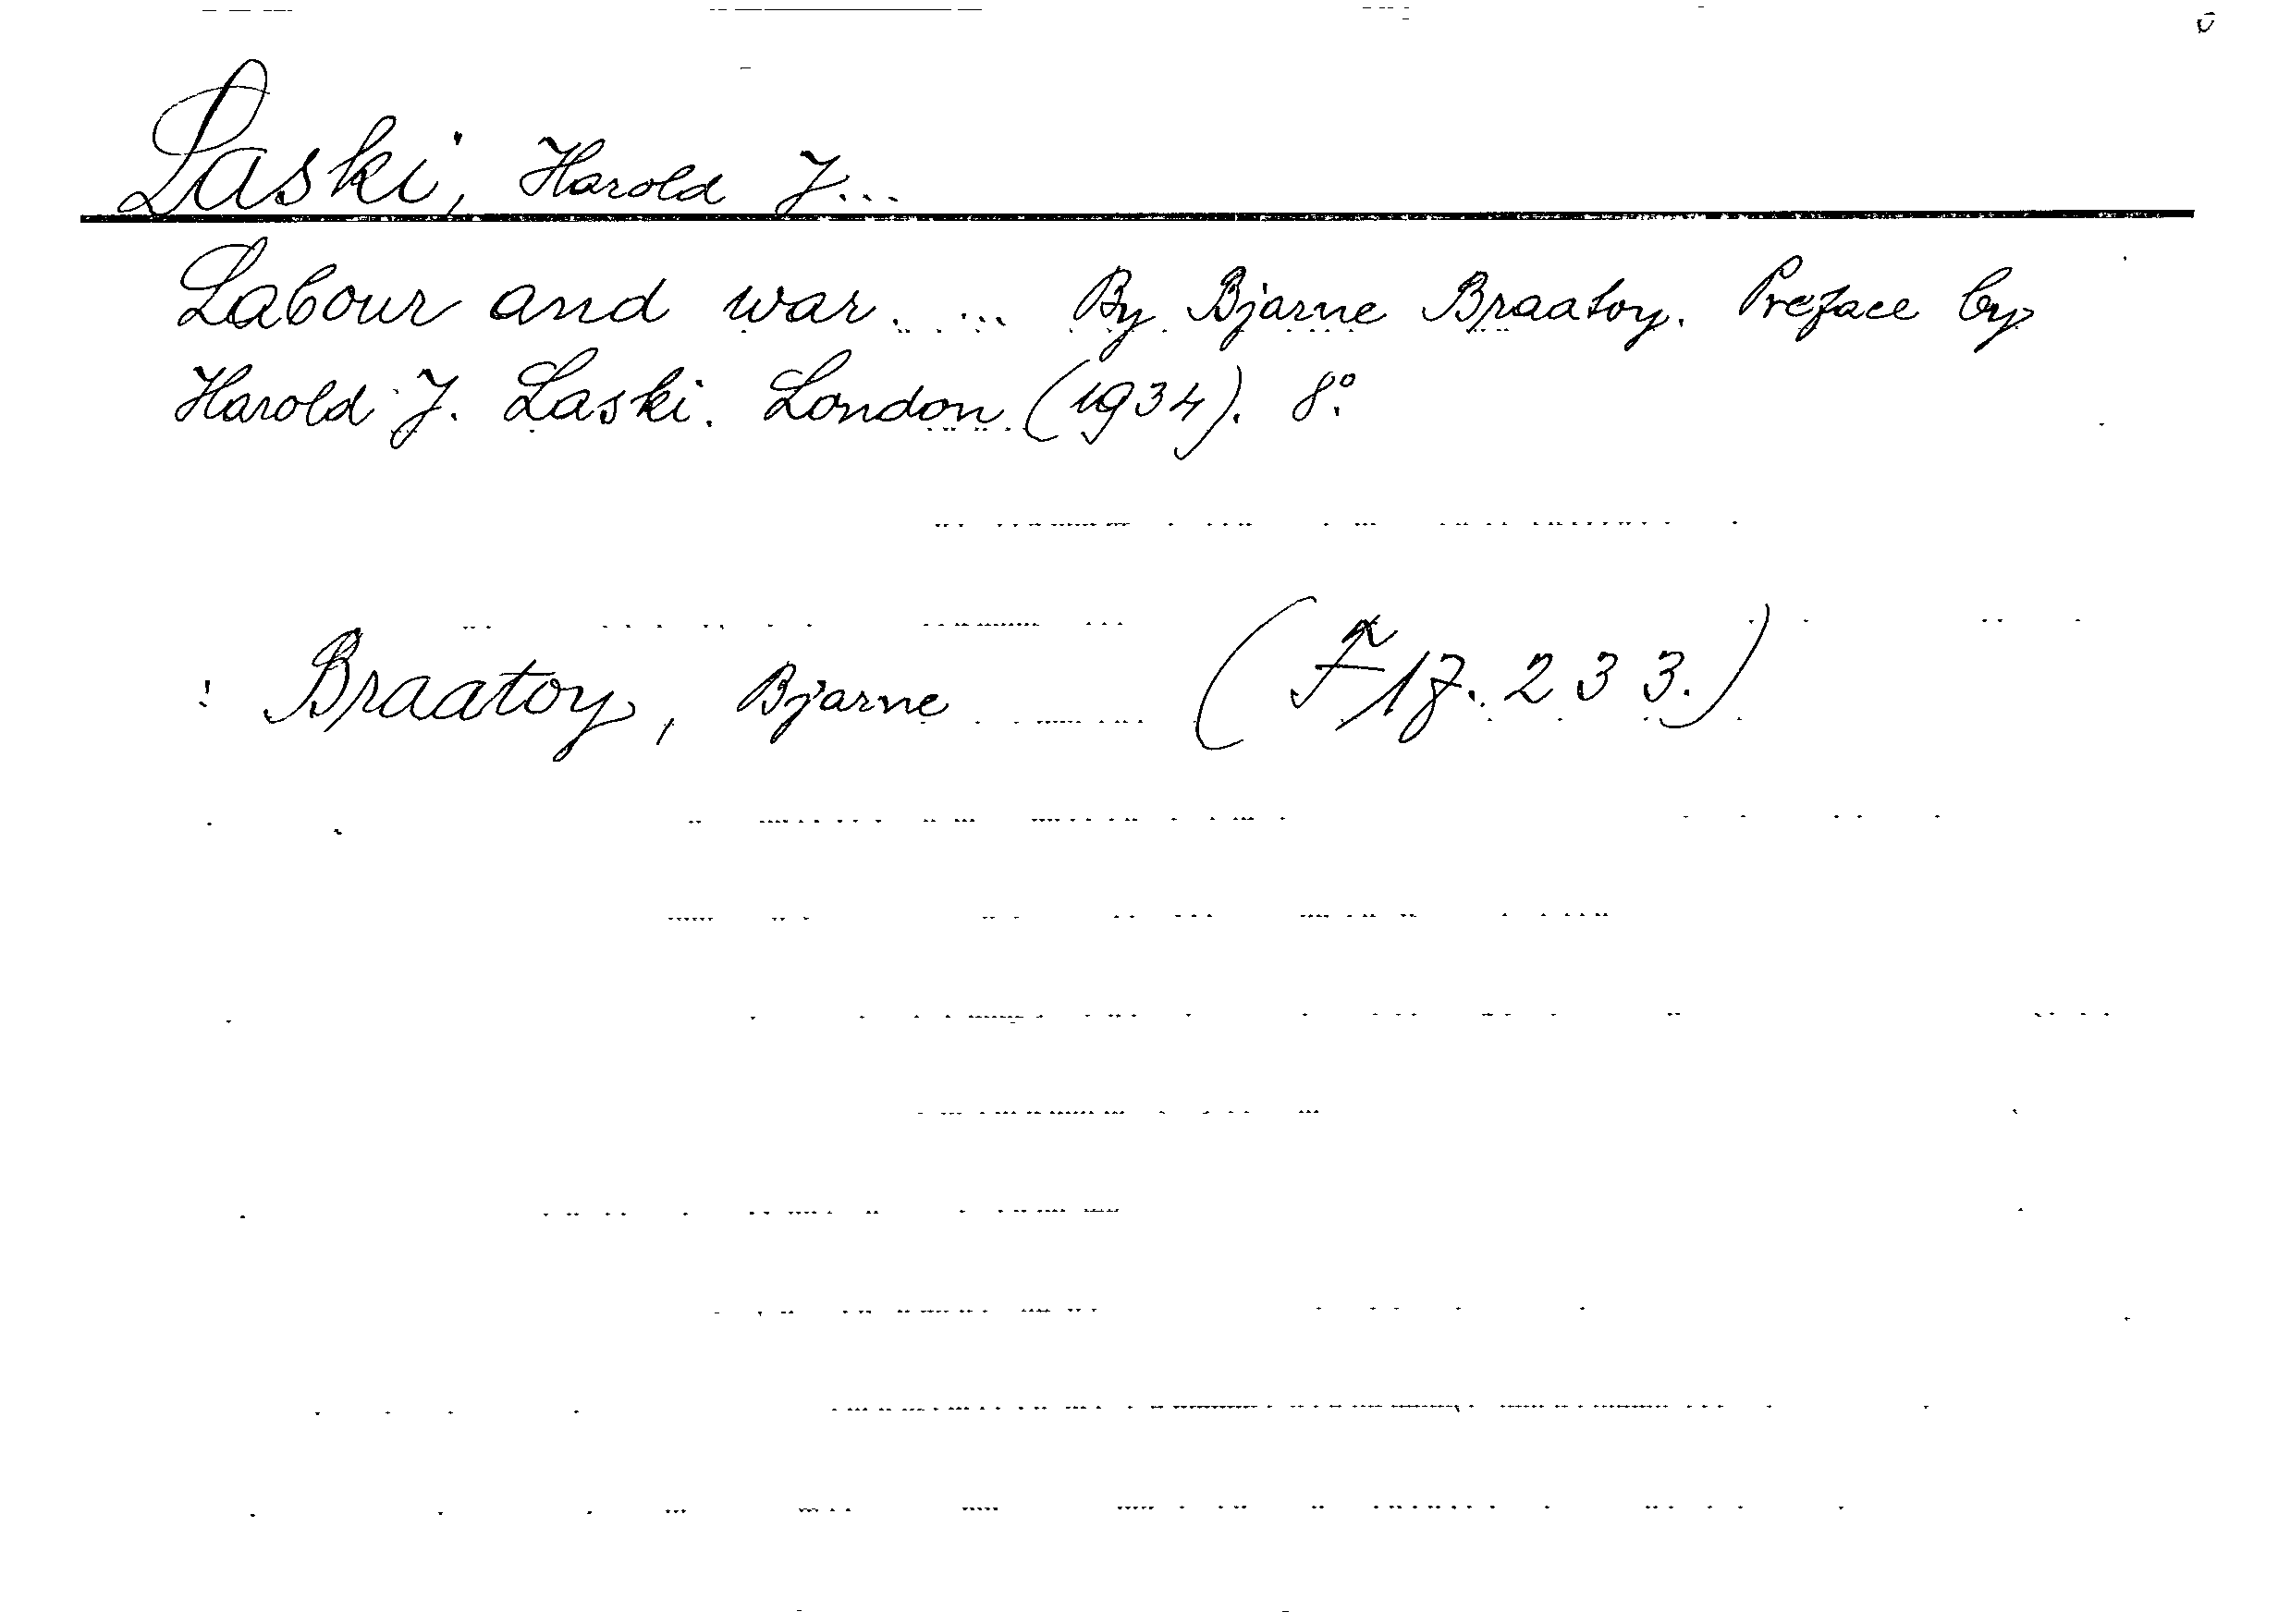 Laski, Harold J...
Labour and war. ... By Bjarne Braatoy. Preface by
Harold J. Laski. London (1934). 8°.
: Braatoy, Bjarne (F 17. 233.)